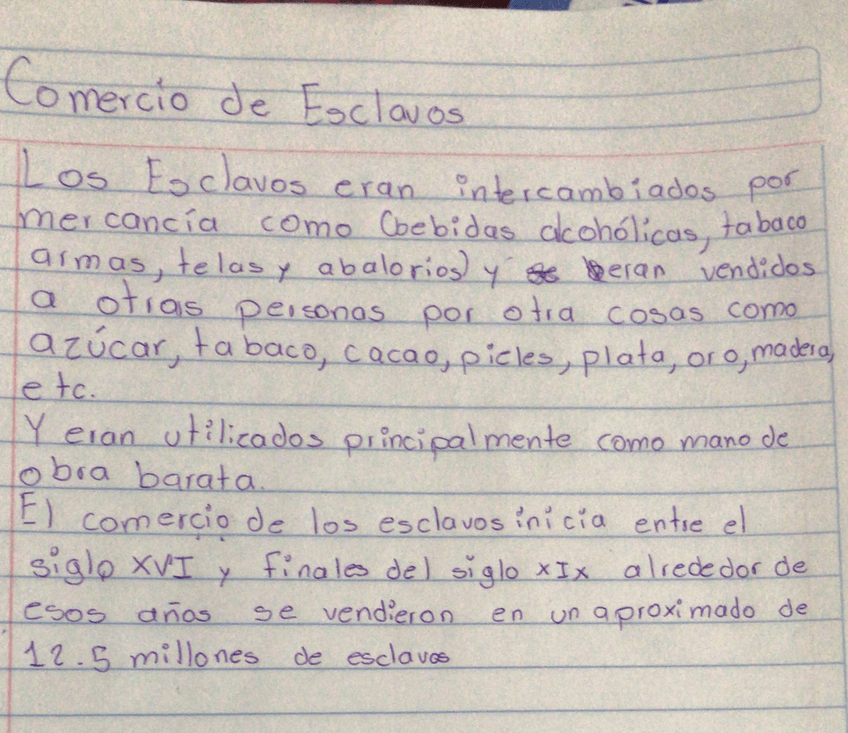 Comercio de Esclavos
Los Esclavos eran intercambiados por
mercancía como (bebidas alcohólicas, tabaco
armas, telas y abalorios) y eran vendidos
a otras personas por otra cosas como
azúcar, tabaco, cacao, picles, plata, oro, madera,
etc.
Y eran utilicados principalmente como mano de
obra barata.
El comercio de los esclavos inicia entre el
siglo XVI y finales del siglo XIX alrededor de
esos años se vendieron en un aproximado de
12.5 millones de esclavos